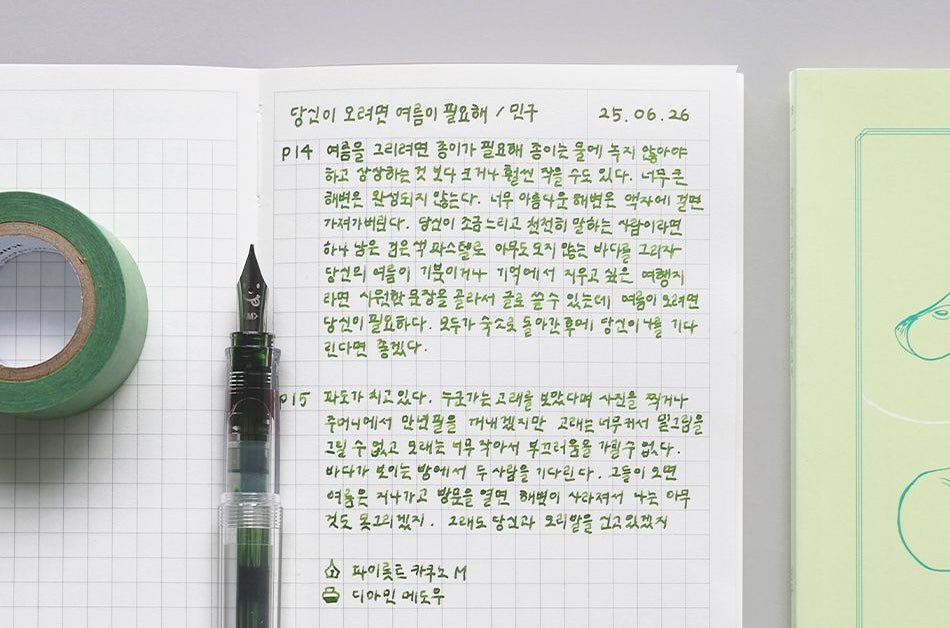 당신이 오려면 여름이 필요해 / 민구
25. 06. 26
p14 여름을 그리려면 종이가 필요해 종이는 물에 녹지 않아야
하고 상상하는 것 보다 크거나 훨씬 작을 수도 있다. 너무 큰
해변은 완성되지 않는다. 너무 아름다운 해변은 액자에 걸면
가져가버린다. 당신이 조금 느리고 천천히 말하는 사람이라면
하나 남은 검은색 파스텔로 아무도 오지 않는 바다를 그리자
당신의 여름이 기분이거나 기억에서 지우고 싶은 여행지
라면 시원한 문장을 골라서 글로 쓸 수 있는데 여름이 오려면
당신이 필요하다. 모두가 숙소로 돌아간 후에 당신이 나를 기다
린다면 좋겠다.
p15 파도가 치고 있다. 누군가는 고래를 보았다며 사진을 찍거나
주머니에서 만년필을 꺼내겠지만 고래는 너무 커서 밑그림을
그릴 수 없고 모래는 너무 작아서 부끄러움을 가릴 수 없다.
바다가 보이는 방에서 두 사람을 기다린다. 그들이 오면
여름은 지나가고 방문을 열면 해변이 사라져서 나는 아무
것도 못그리겠지. 그래도 당신과 오리발을 신고 있겠지
파이롯트 카쿠노 M
디아민 메도우
<M>